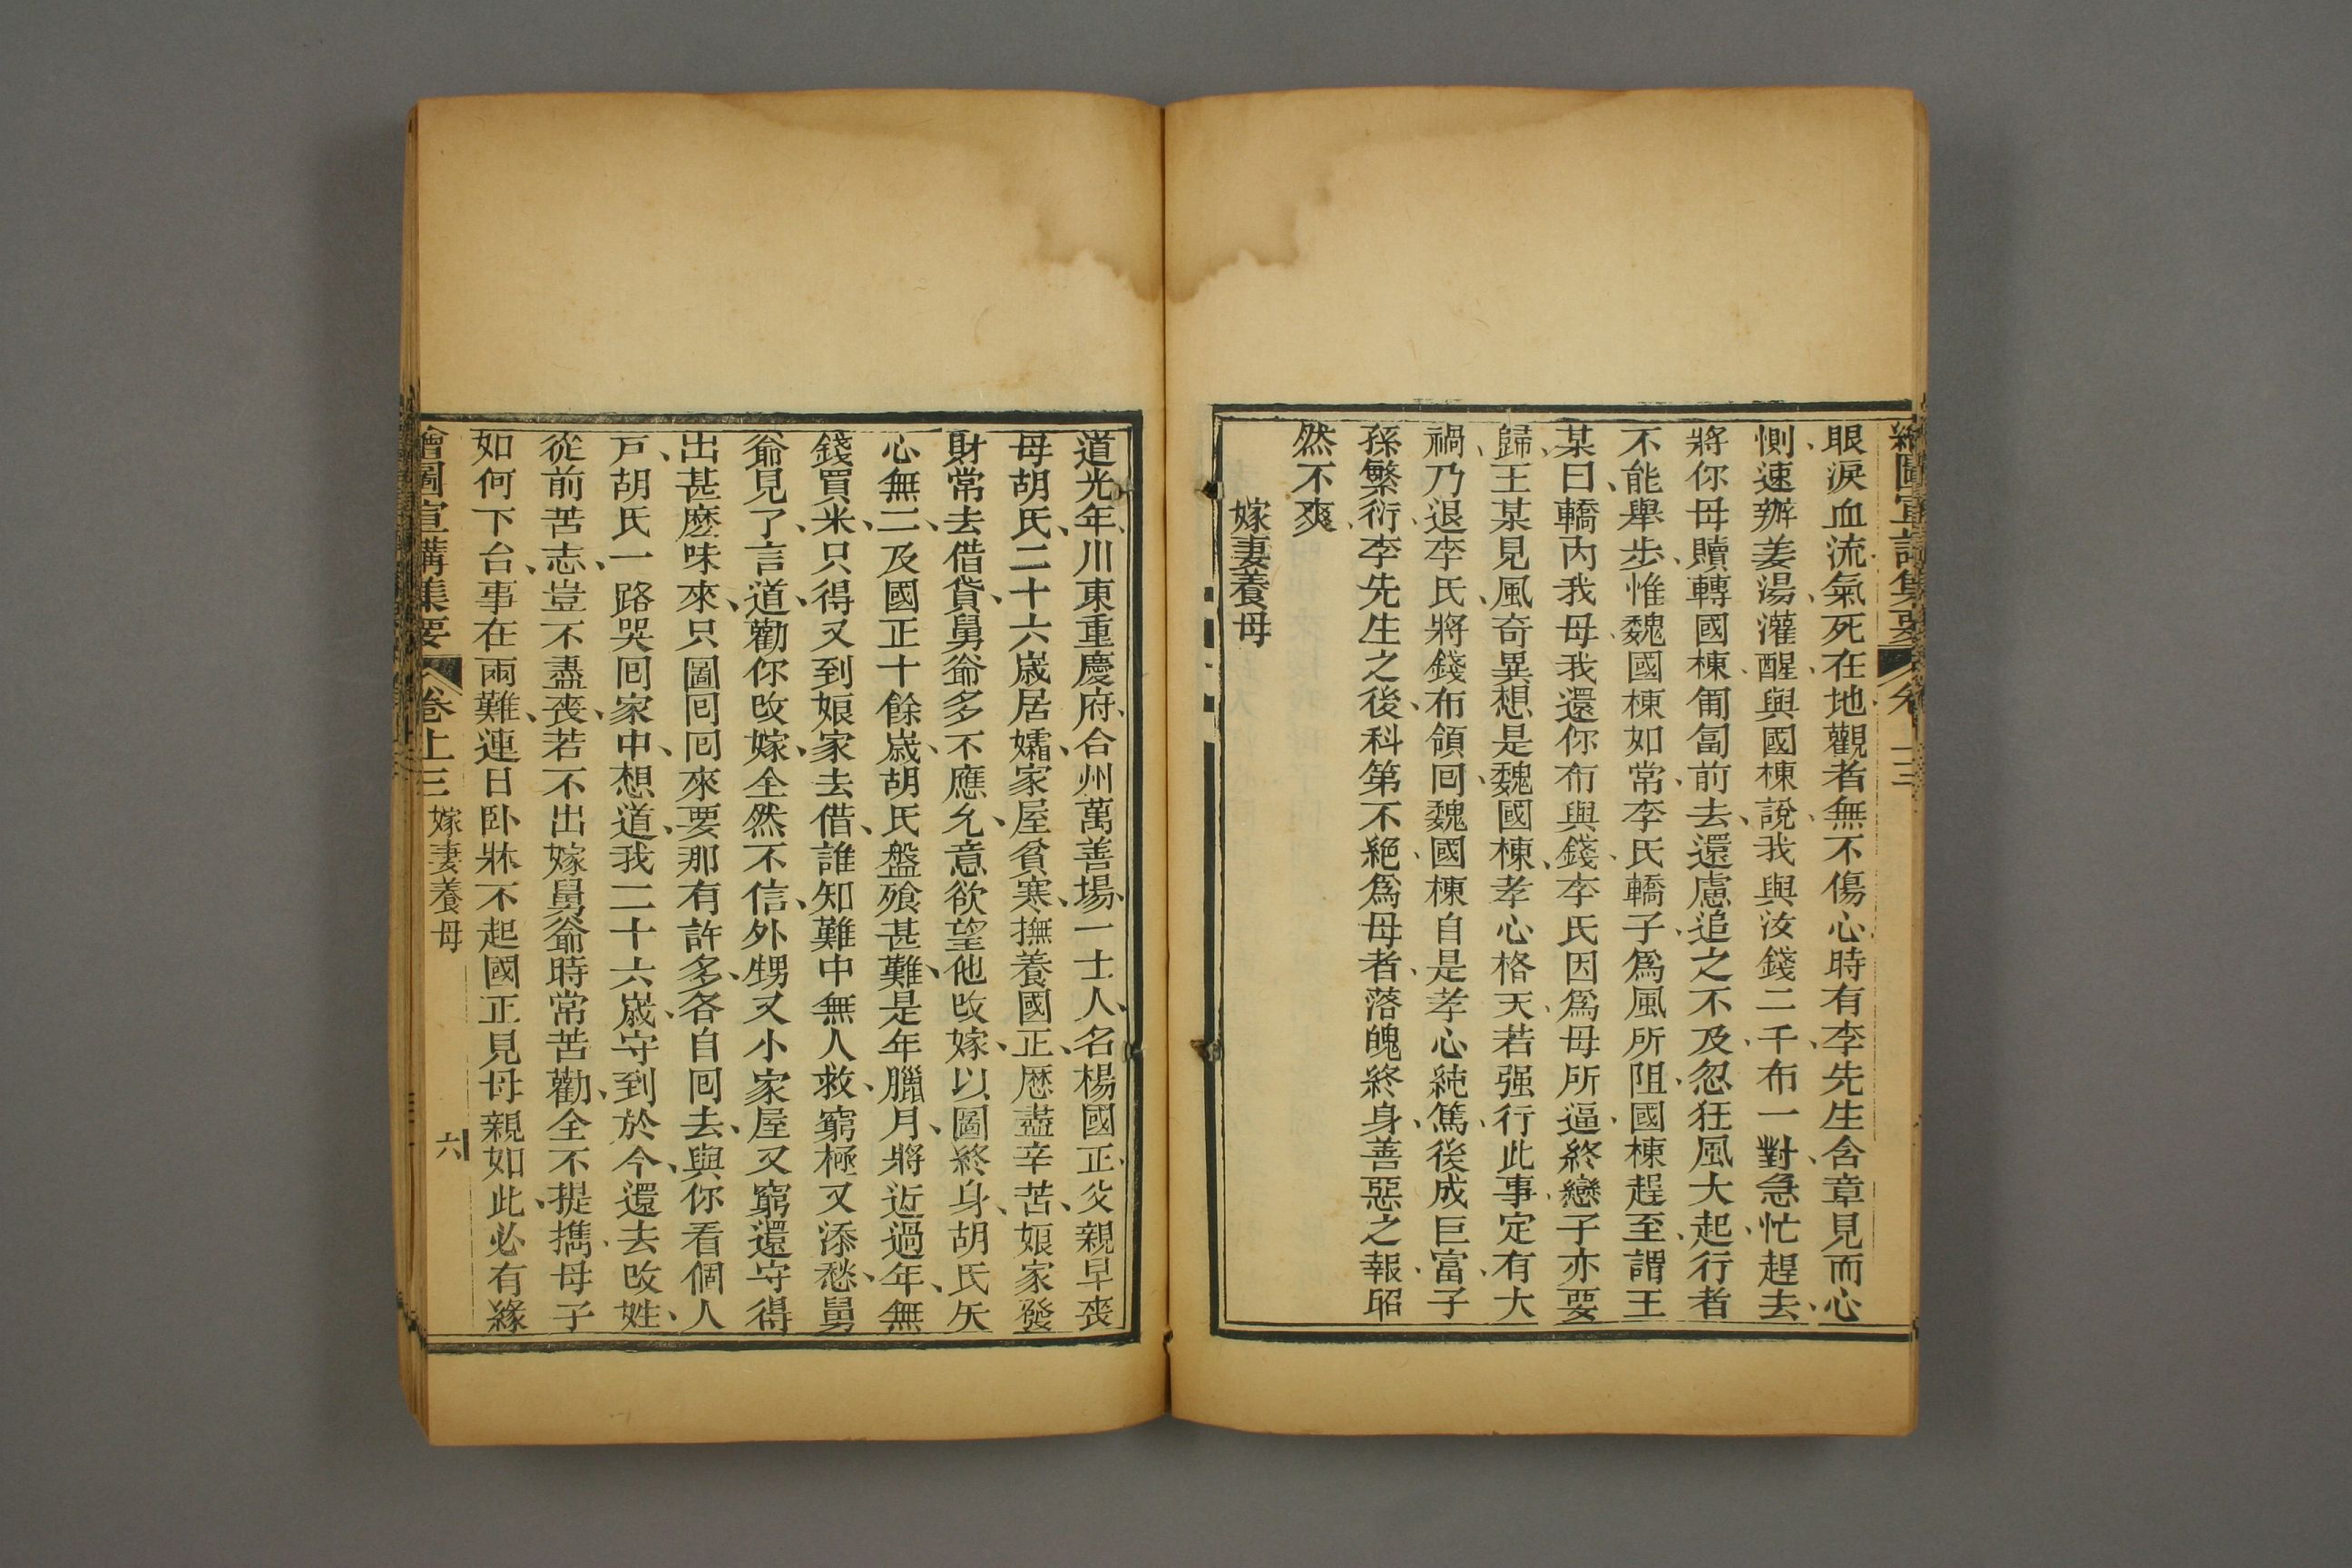 眼淚血流氣死在地觀者無不傷心時有李先生含章見而心
惻、速辦姜湯、灌醒、與國棟說、我與汝錢二千、布一對、急忙趕去、
將你母贖轉國棟匍匐前去、還慮追之不及忽狂風大起、行者
不能舉步、惟魏國棟如常、李氏轎子、爲風所阻、國棟趕至、謂王
某曰、轎內我母、我還你布與錢、李氏因爲母所逼、終戀子亦要
歸、王某見風奇異、想是魏國棟、孝心格天、若强行此事、定有大
禍、乃退李氏、將錢布領囘、魏國棟自是孝心純篤、後成巨富、子
孫繁衍、李先生之後、科第不絕、爲母者、落魄終身、善惡之報、昭
然不爽、
嫁妻養母
繪圖宣講集要 卷上三
道光年、川東重慶府、合州萬善場、一士人、名楊國正、父親早喪
母胡氏、二十六歲居孀、家屋貧寒、撫養國正、歷盡辛苦、娘家發
財常去借貸、舅爺多不應允、意欲望他改嫁、以圖終身、胡氏矢
心無二、及國正十餘歲、胡氏盤飱甚難、是年臘月、將近過年、無
錢買米、只得又到娘家去借、誰知難中無人救、窮極又添愁、舅
爺見了、言道、勸你改嫁、全然不信、外甥又小家屋又窮還守得
出甚麽味來、只圖囘囘來要那有許多、各自囘去、與你看個人
戶、胡氏一路哭囘家中、想道、我二十六歲、守到於今、還去改姓、
從前苦志、豈不盡喪、若不出嫁舅爺時常苦勸、全不提攜、母子
如何下台、事在兩難、連日卧牀不起國正見母親如此、必有緣
繪圖宣講集要 卷上三 嫁妻養母 六